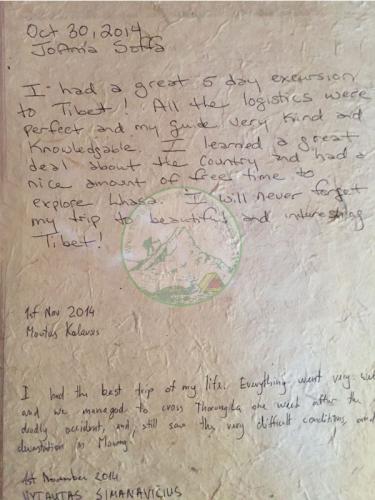 Oct 30, 2014
JoAnna
I had a great 5 day excursion
to Tibet! All the logistics were
perfect and my guide very kind and
Knowledgable. I learned a great
deal about the country and had a
nice amount of free time to
explore Lhasa. I will never forget
my trip to beautiful and interesting
Tibet!
1st Nov 2014
I had the best trip of my life. Everything went very well
and we managed to cross Thorungla one week after the
deadly accident, and, still saw the very difficult conditions, and
devastation in
1st November 2014
VYTAUTAS SIMANAVIČIUS